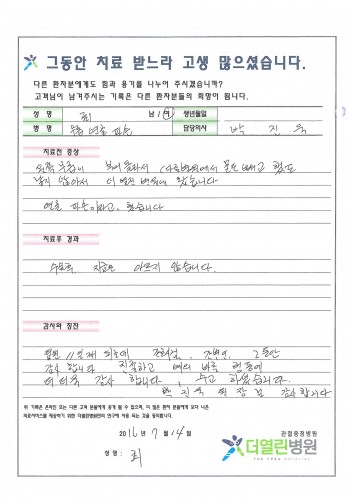 그동안 치료 받느라 고생 많으셨습니다.
다른 환자분에게도 힘과 용기를 나누어 주시겠습니까?
고객님이 남겨주시는 기록은 다른 환자분들의 희망이 됩니다.
성 명 최 남 / 여 생년월일
병 명 연골 파손 담당의사 박진욱
치료전 증상
왼쪽 무릎이 부어 올라서 물을 빼고 했도
낫지 않아서 더 열린 병원에 왔습니다
연골 파손이라고 했습니다
치료후 경과
수술후 지금은 아프지 않습니다.
감사와 칭찬
11일째 되는데 간호님, 간병인, 그동안
감사합니다 친절하고 예의 바른 행동에
더더욱 감사 합니다, 수고 하셨습니다.
박진욱 원장님 감사합니다
위 기록은 온라인 또는 다른 고객 분들에게 공개 될 수 있으며, 이 점은 환자 분들에게 보다 나은
의료서비스를 제공하기 위한 더열린병원만의 연구에 사용 되는 것을 동의합니다.
2016 년 7 월 14 일
성명 : 최
관절중점병원
더열린병원
THE OPEN HOSPITAL